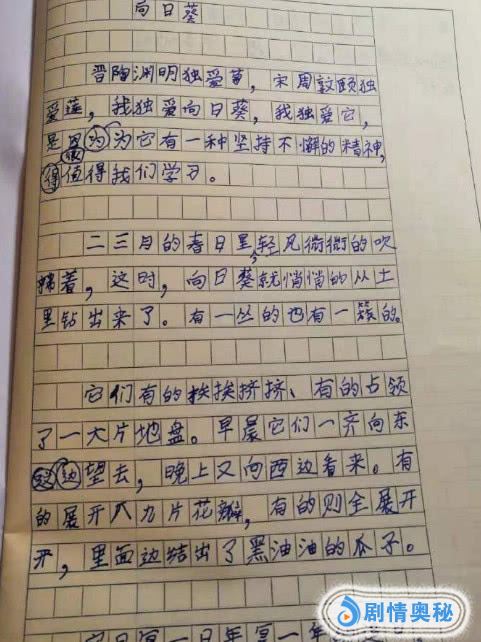 向日葵
晋陶渊明独爱菊，宋周敦颐独
爱莲，我独爱向日葵，我独爱它，
是因为为它有一种坚持不懈的精神，
很值得我们学习。
二三月的春日里，轻风微微的吹
拂着，这时，向日葵就悄悄的从土
里钻出来了。有一丛的也有一簇的。
它们有的挨挨挤挤、有的占领
了一大片地盘。早晨它们一齐向东
边望去，晚上又向西边看来。有
的展开八九片花瓣，有的则全展开
开，里面边结出了黑油油的瓜子。
一日年复一年
剧情奥秘